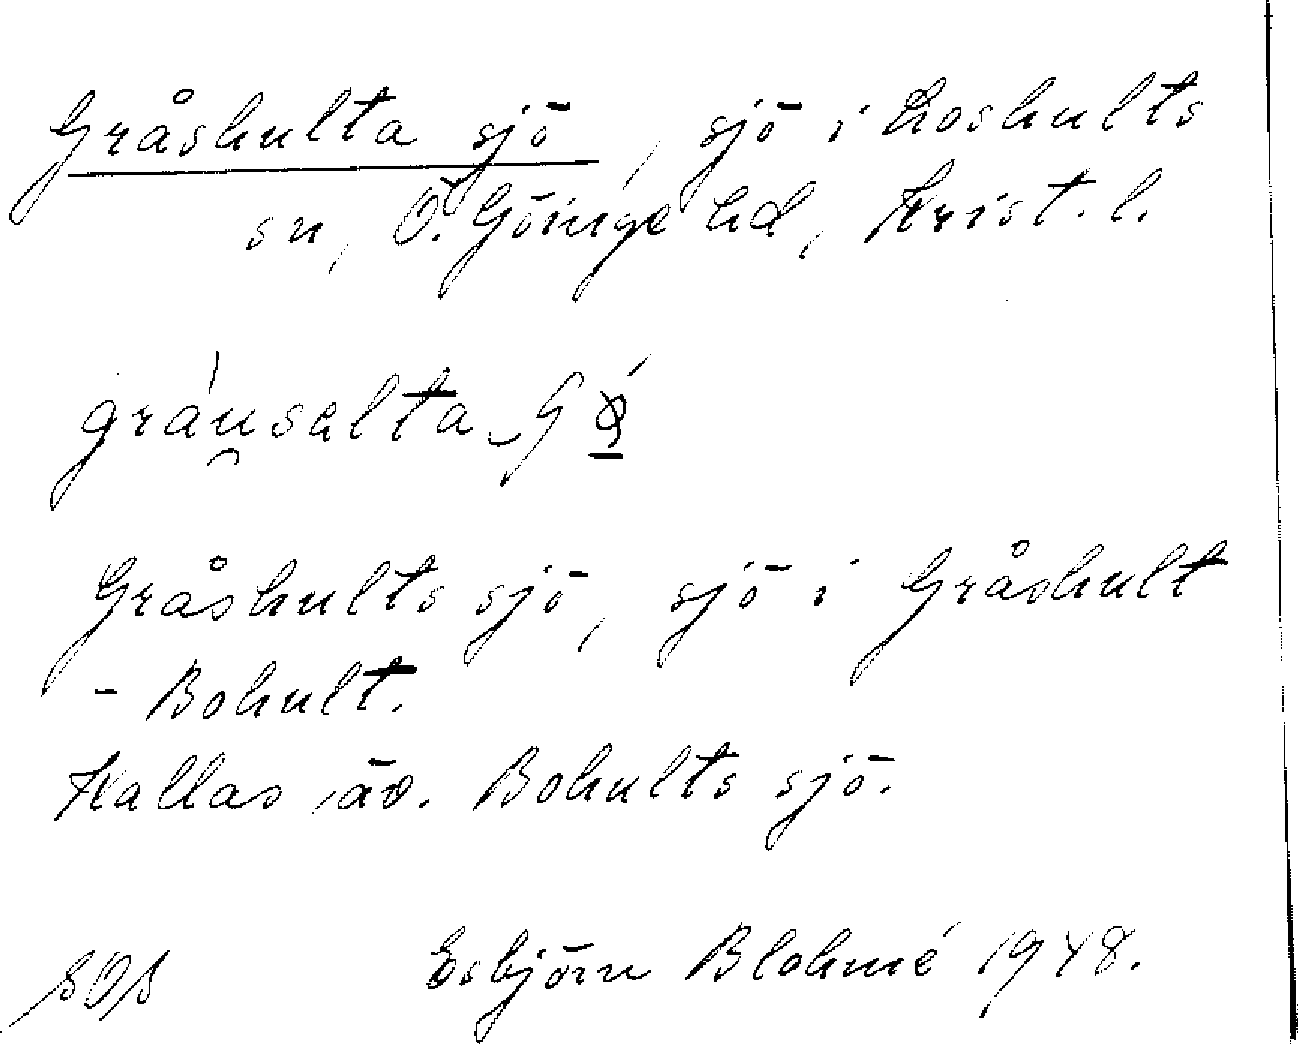 Gråshulta sjö, sjö i Loshults
sn, Ö. Göinge hd, Krist. l.
Gråshults sjö, sjö i Gråshult
- Bohult.
Kallas äv. Bohults sjö.
SOS Esbjörn Blohmé 1948.